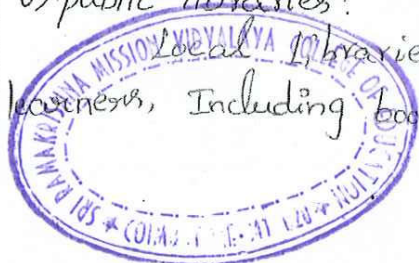 of public libraries?
Local libraries
learners, Including boo
SRI RAMAKRISHNA MISSION VIDYALAYA COLLEGE OF EDUCATION